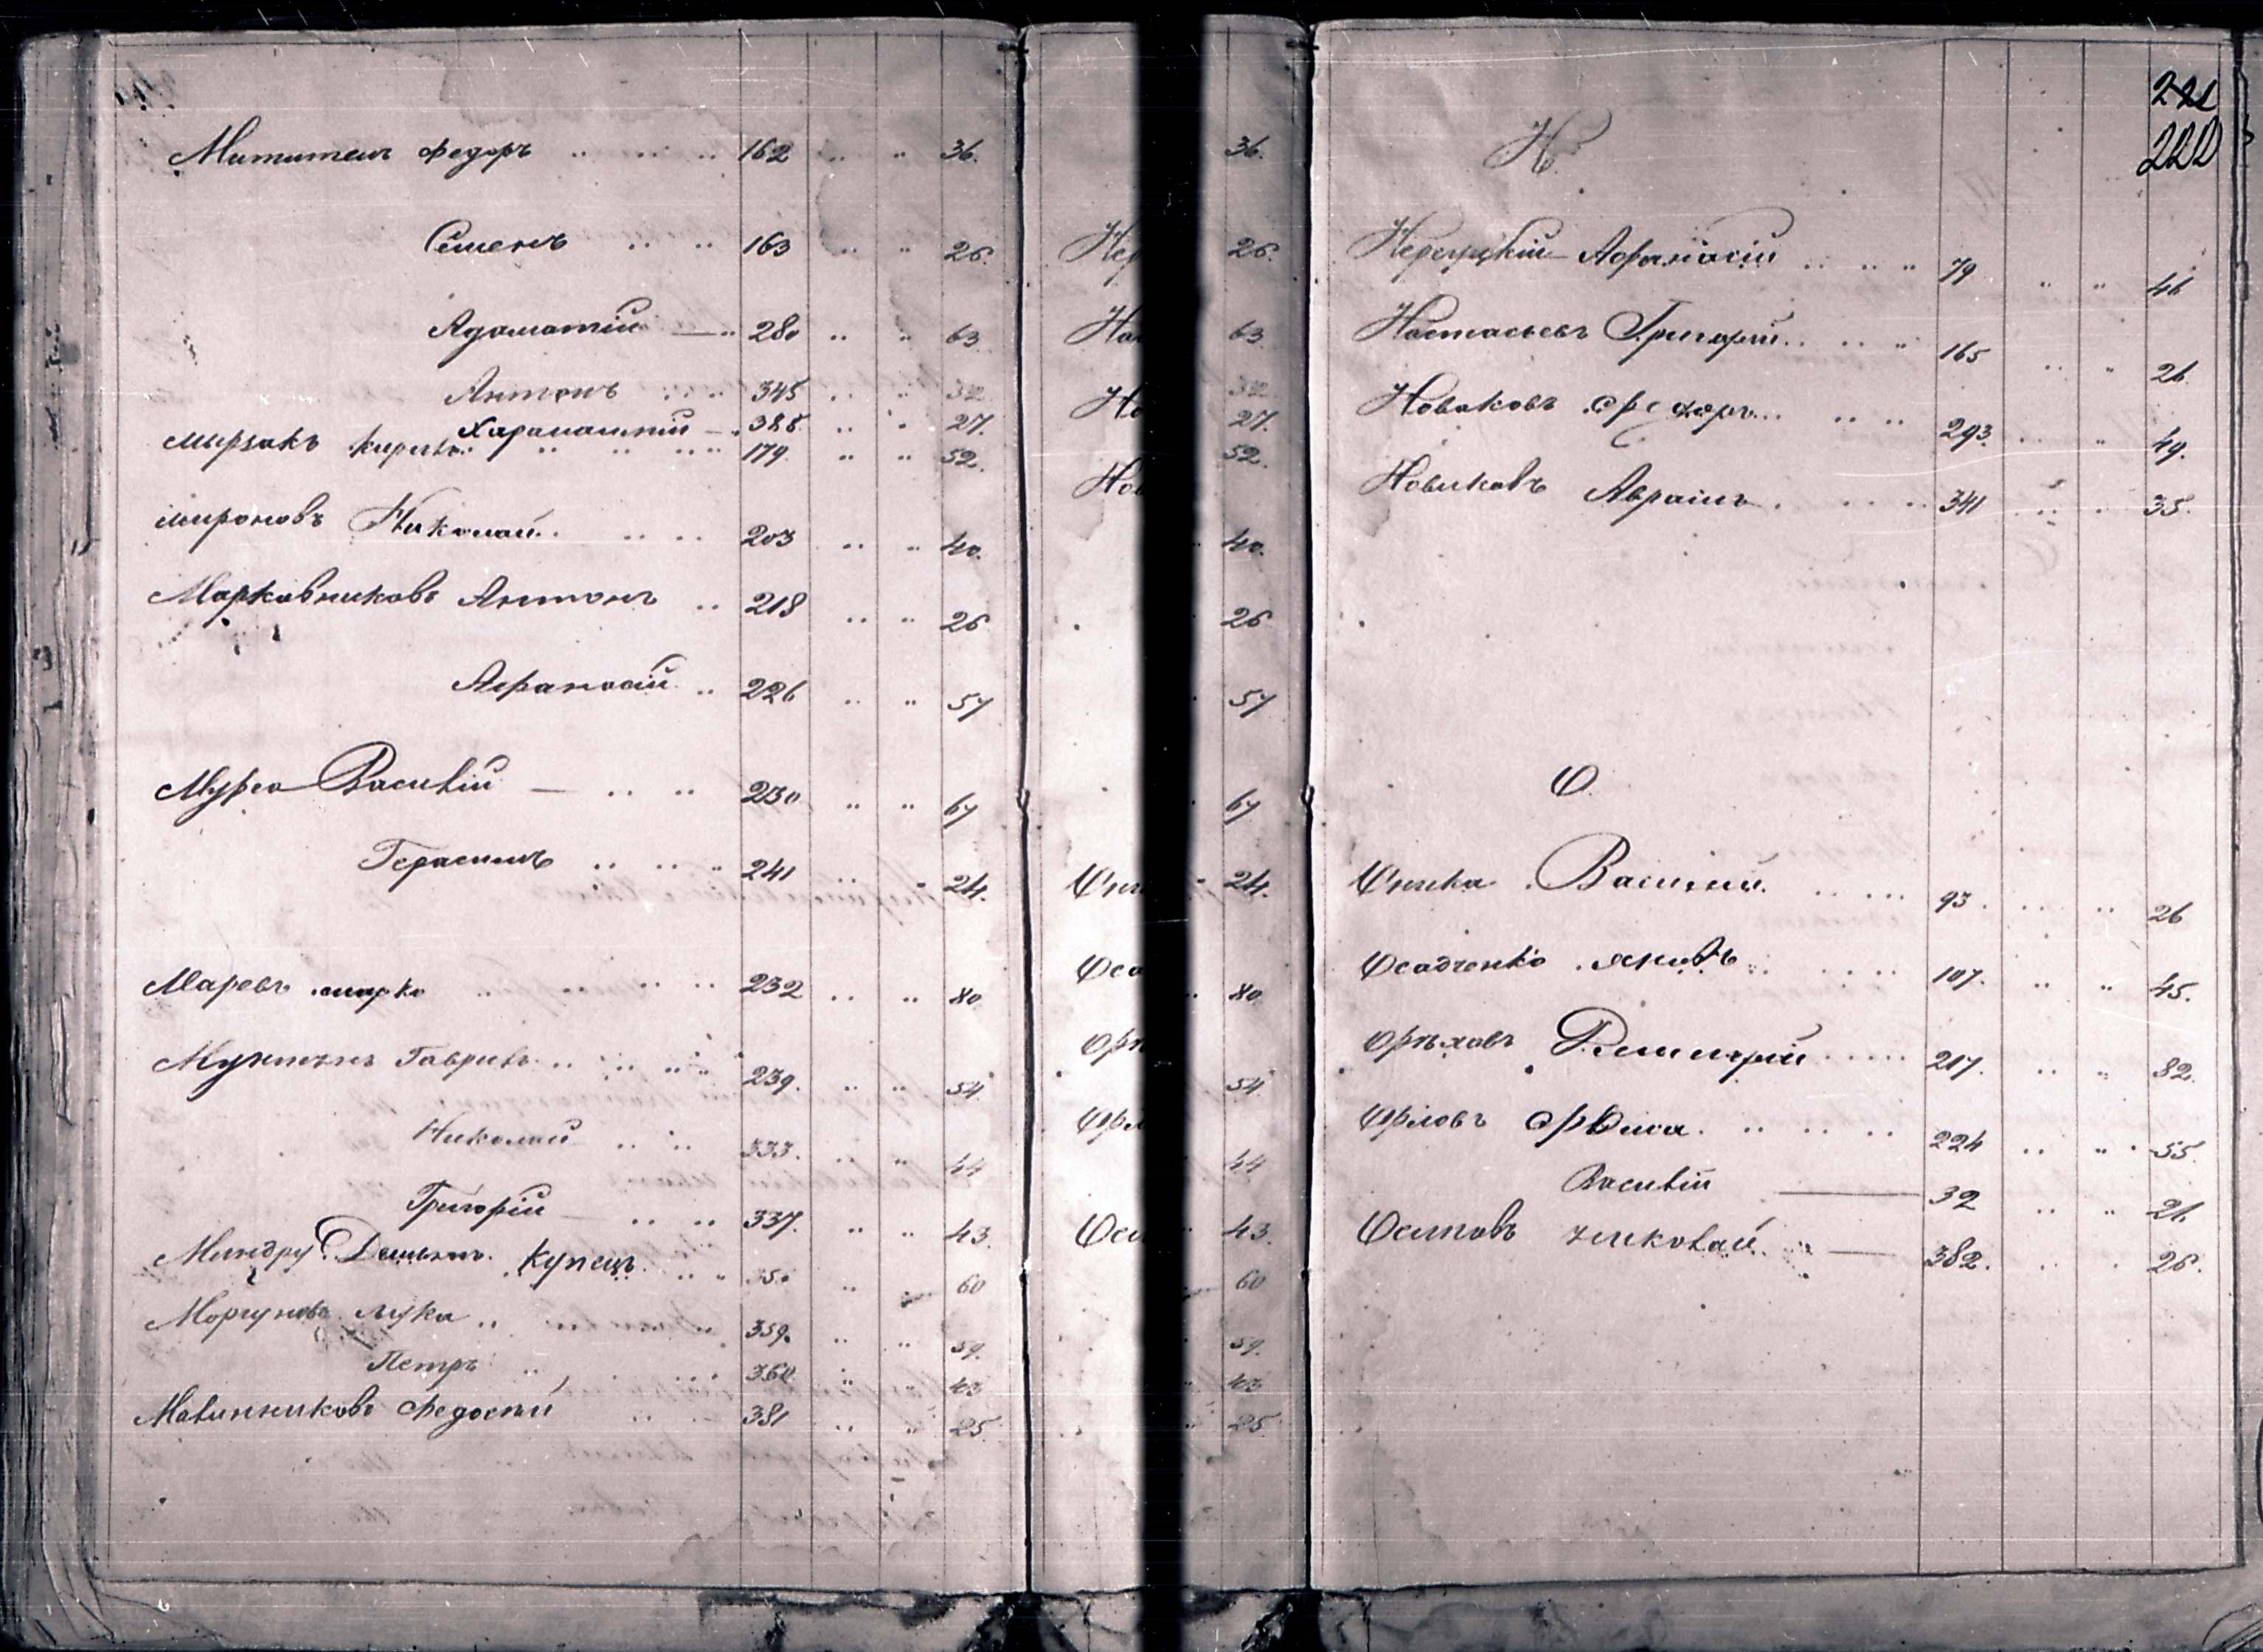 Мититель Федоръ .. .. .. 162 .. .. 36.
Семенъ .. .. 163 .. .. 26.
Адаматій — .. 280 .. .. 63
Антонъ .. .. 345 .. .. 32
Харалампій — .. 388. .. .. 27.
Мырзакъ Кирилъ .. .. .. .. 179. .. .. 52.
Мироновъ Николай .. .. 203 .. .. 40.
Марковниковъ Антонъ .. 218 .. .. 26
Афанасій .. 226 .. .. 57
Мурга Василій — .. .. 230 .. .. 67
Герасимъ .. .. .. 241 .. .. 24.
Маревъ Марко .. .. 232 .. .. 80.
Мунтянъ Гаврилъ .. .. .. 239. .. .. 54
Николай .. .. 333. .. .. 44
Григорій — .. .. 337. .. .. 43.
Миндру Демьянъ Купецъ .. .. 350 .. .. 60
Моргуновъ Лука .. 359. .. .. 59.
Петръ .. .. 360 .. .. 43
Малинниковъ Федосій .. 381 .. .. 25.
36.
26.
63.
32
27.
52.
40.
26
57
67
24.
80
54
44
43.
60
59.
43
25
221
222
Н.
Нерецкій Афанасій .. .. .. 79 .. .. 46
Настасьевъ Григорій .. .. .. 165 .. .. 26.
Новаковъ Федоръ .. .. .. 293. .. .. 49.
Новиковъ Авраамъ .. .. 341 .. .. 35.
О.
Оника Василій .. .. 93. .. .. 26
Осадченко Яковъ .. .. 107. .. .. 45.
Орѣховъ Димитрій .. .. 217. .. .. 82.
Орловъ Фома .. .. .. .. 224 .. .. 55.
Василій — 32 .. .. 21.
Осиповъ Николай .. — 382. .. .. 26.